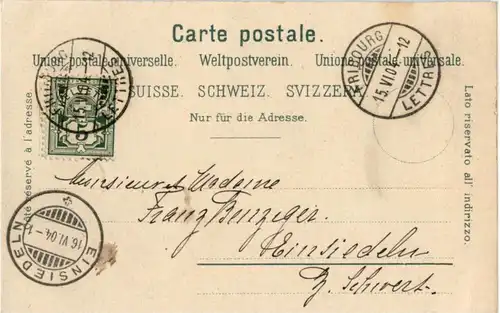 Carte postale.
Union postale universelle. Weltpostverein. Unione postale universale.
SUISSE. SCHWEIZ. SVIZZERA.
Nur für die Adresse.
Côté réservé à l'adresse.
Lato riservato all' indirizzo.
FRIBOURG
15.VI.04.-12
LETTRES
5
Monsieur et Madame
Franz Benziger
Einsiedeln
z. Schwert.
EINSIEDELN
16.VI.04.-1